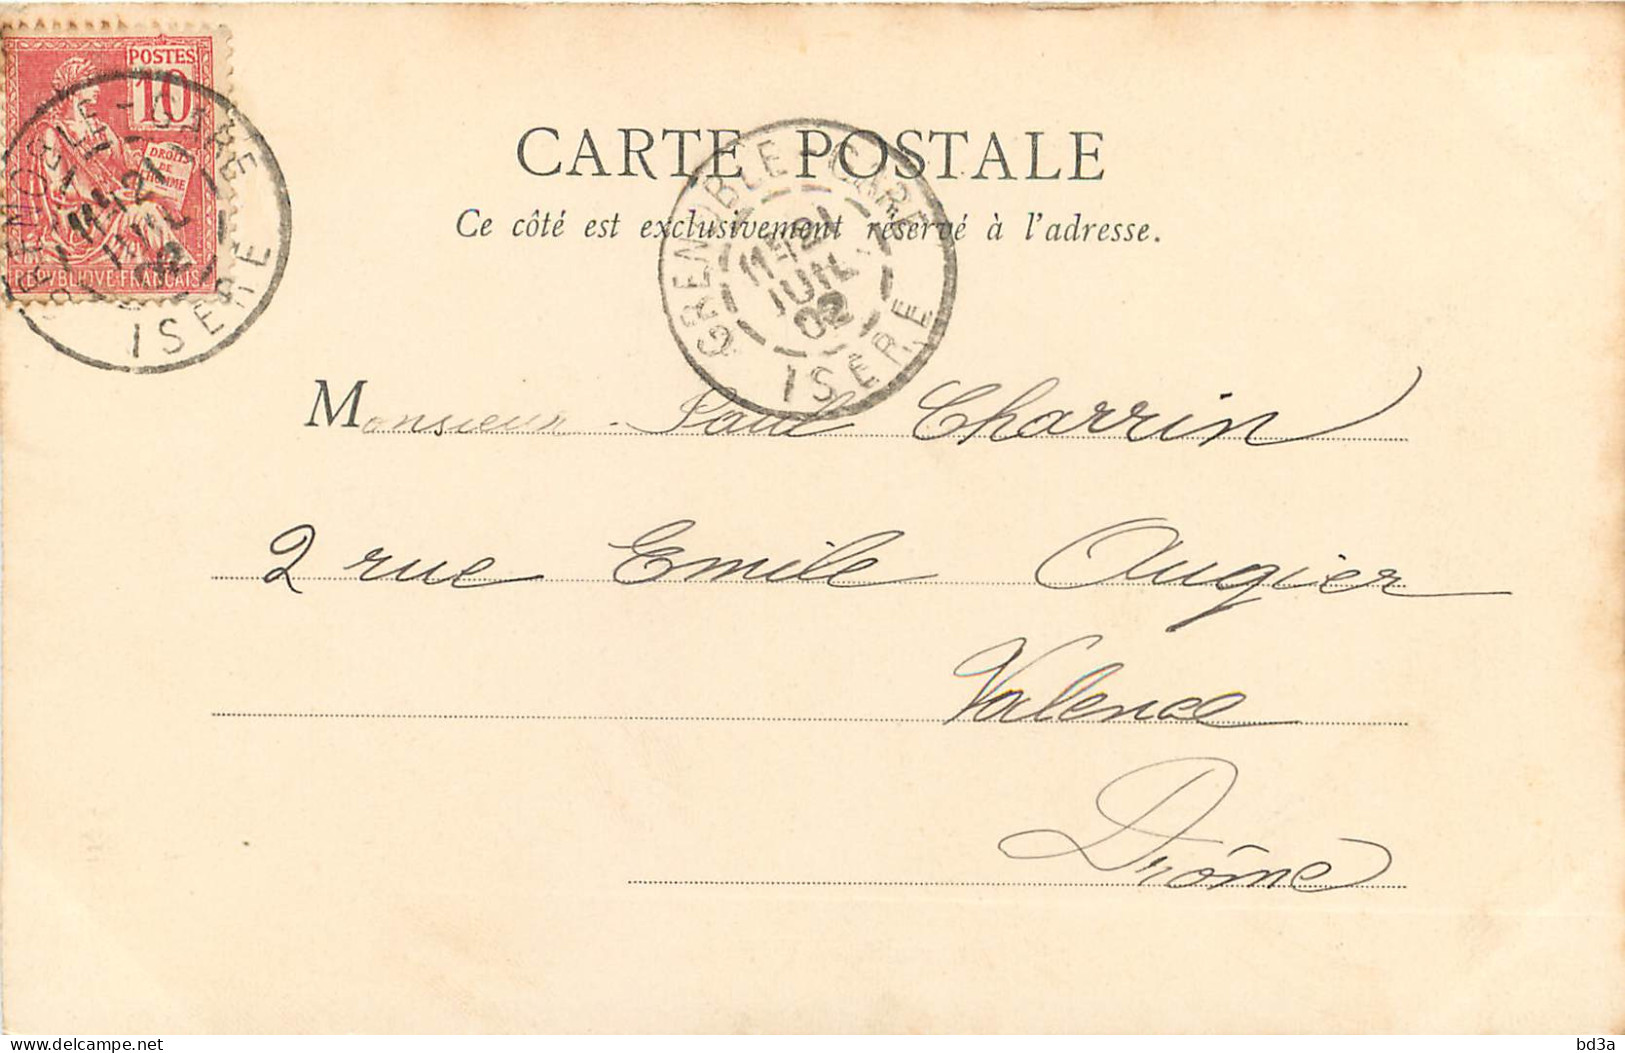 POSTES
10
DROITS
DE
L'HOMME
REPVBLIQVE FRANCAISE
GRENOBLE - GARE
21
JUIL
02
ISERE
CARTE POSTALE
Ce côté est exclusivement réservé à l'adresse.
GRENOBLE - GARE
21
JUIL
02
ISERE
Monsieur Paul Charrin
2 rue Emile Augier
Valence
Drôme
Delcampe.net
bd3a